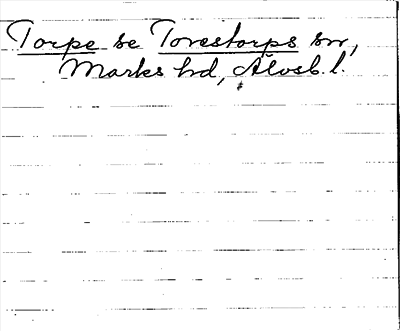 Torpe se Torestorps sn,
Marks hd, Älvsb. l.